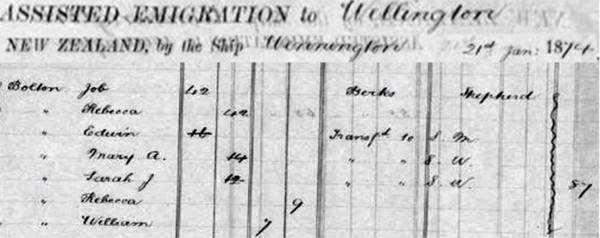 ASSISTED EMIGRATION to Wellington
NEW ZEALAND, by the Ship Winnington 21st Jan: 1874.
Bolton Job 42 Berks Shepherd
" Rebecca 42
" Edwin 16 Transfd to S. M.
" Mary A. 14 " " S. W.
" Sarah J 12 " " S. W. 87
" Rebecca 9
" William 7